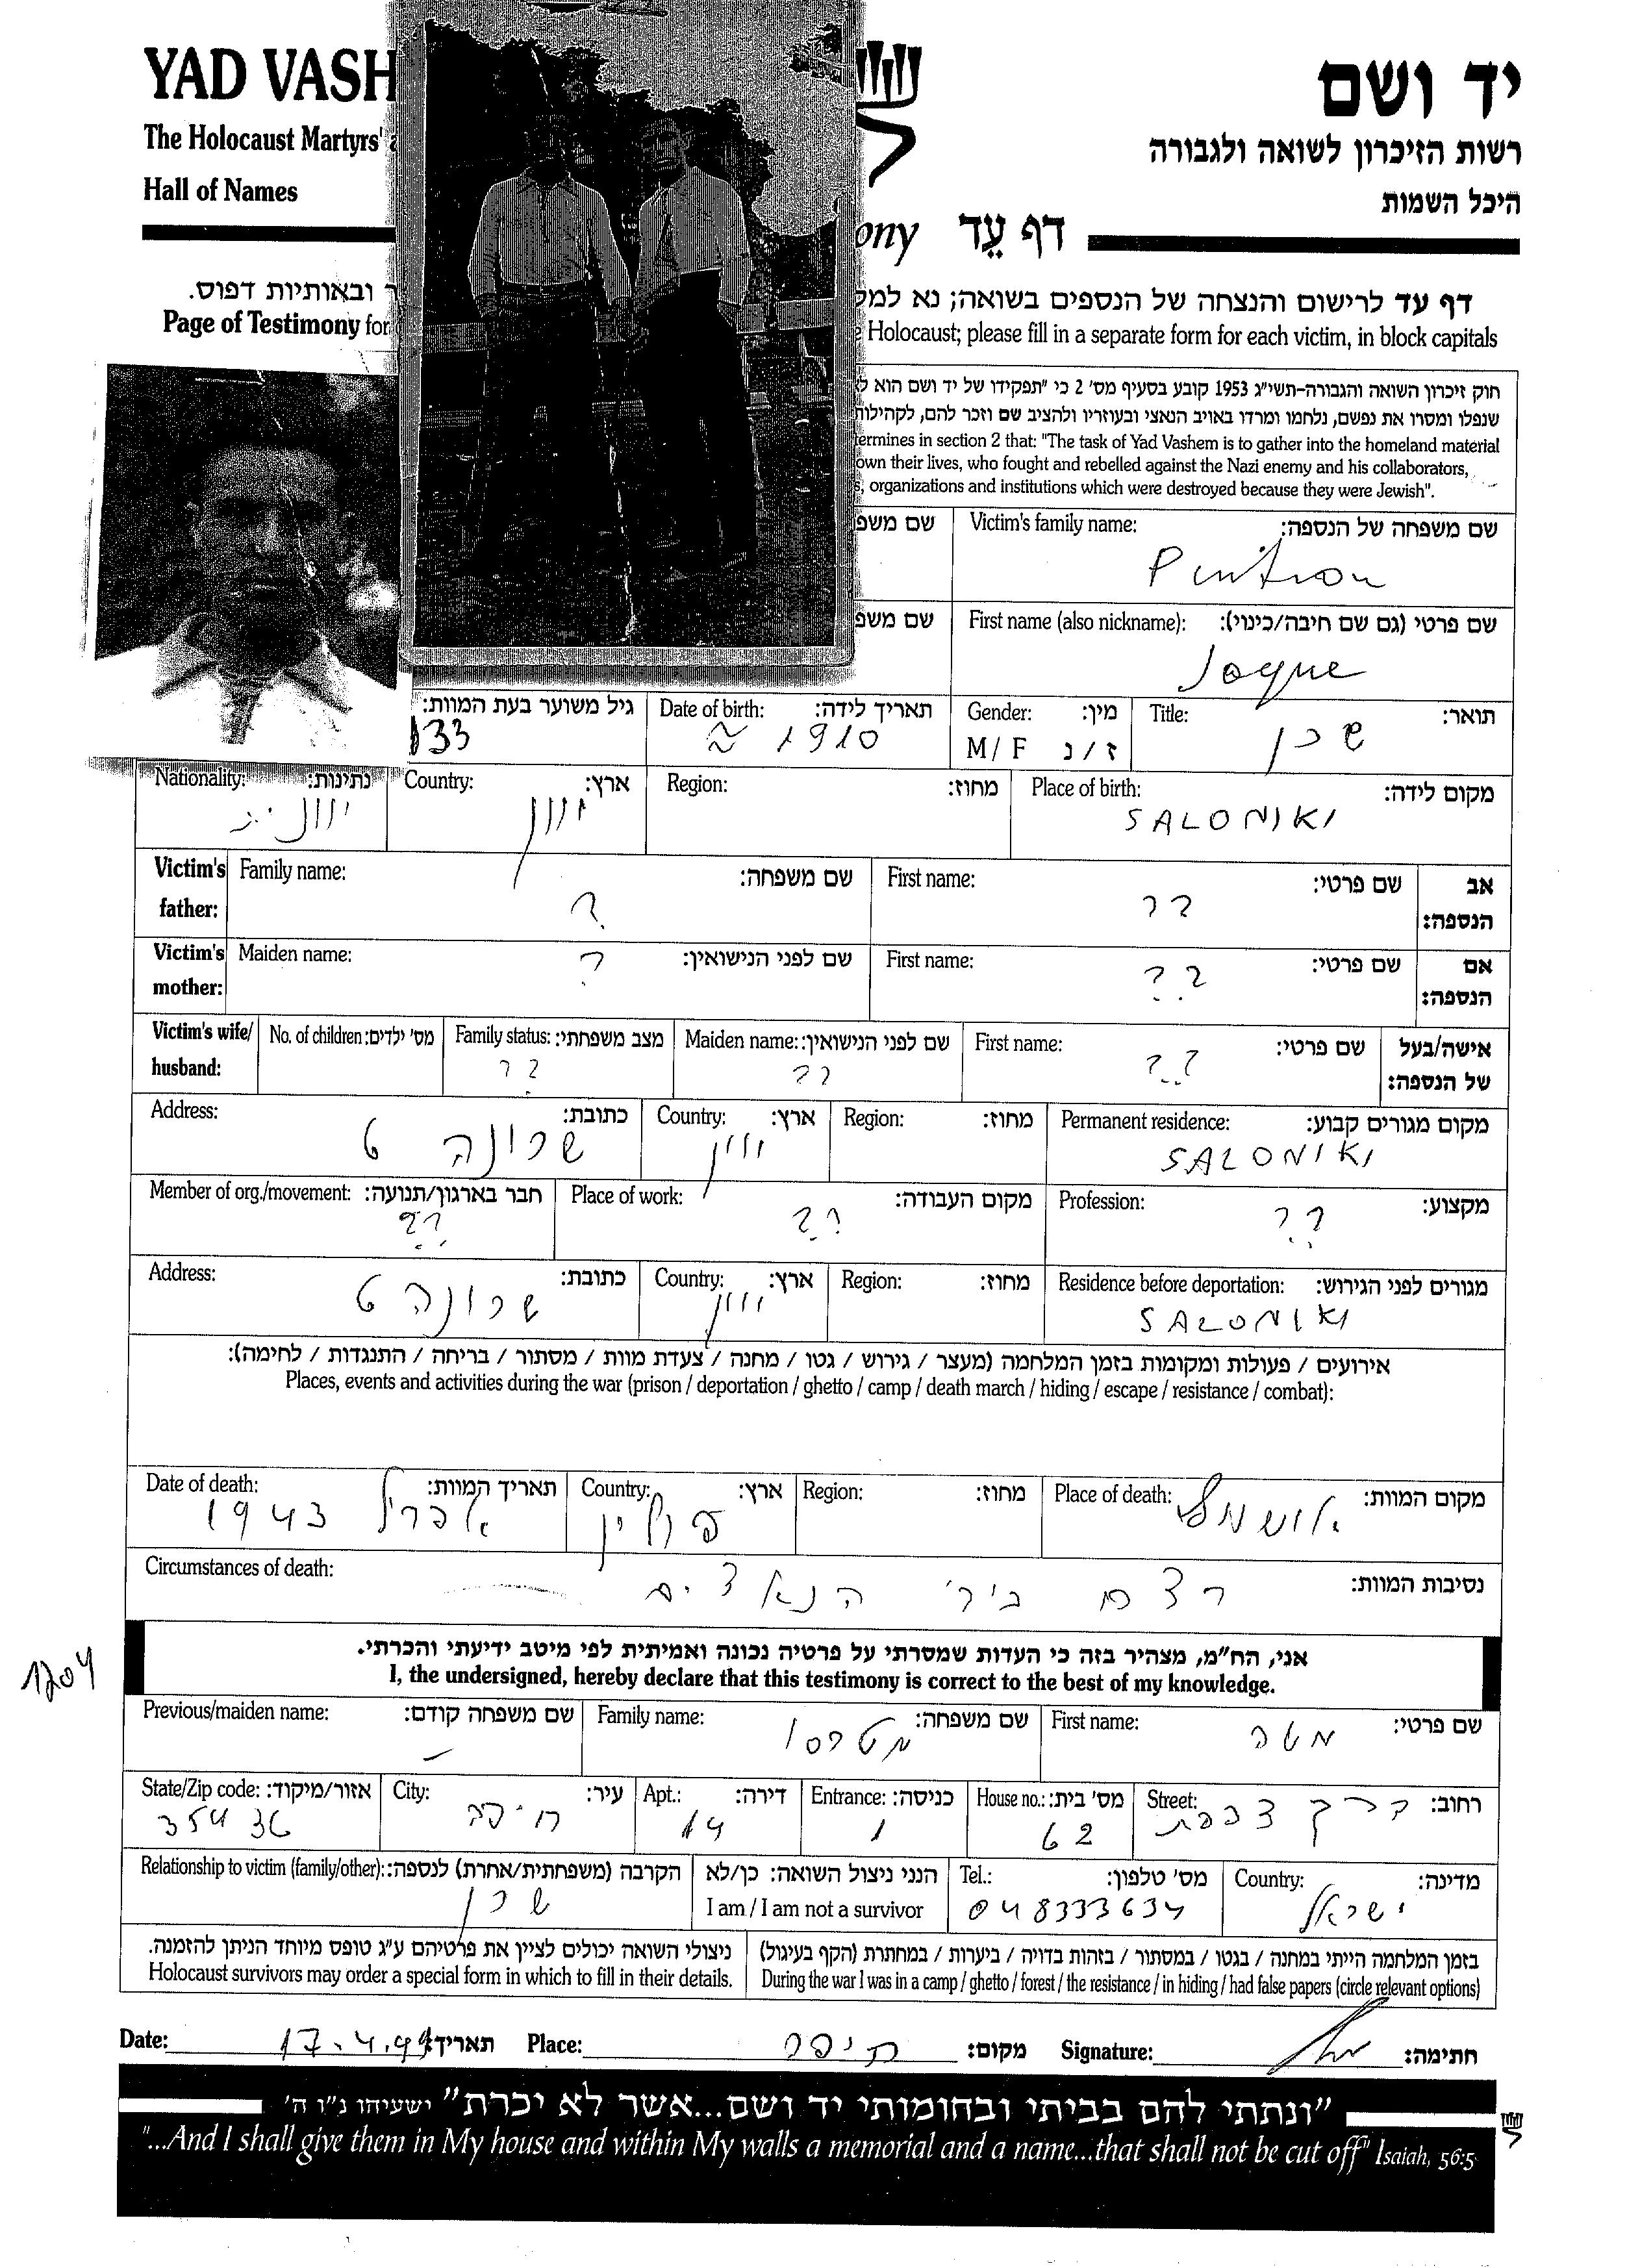 YAD VASH
The Holocaust Martyrs'
Hall of Names
יד ושם
רשות הזיכרון לשואה ולגבורה
היכל השמות
ony דף עֵד
דף עד לרישום והנצחה של הנספים בשואה; נא למל
ר ובאותיות דפוס.
Page of Testimony for
Holocaust; please fill in a separate form for each victim, in block capitals
חוק זיכרון השואה והגבורה-תשי"ג 1953 קובע בסעיף מס' 2 כי "תפקידו של יד ושם הוא ל
שנפלו ומסרו את נפשם, נלחמו ומרדו באויב הנאצי ובעוזריו ולהציב שם וזכר להם, לקהילות
termines in section 2 that: "The task of Yad Vashem is to gather into the homeland material
own their lives, who fought and rebelled against the Nazi enemy and his collaborators,
s, organizations and institutions which were destroyed because they were Jewish".
שם משפ Victim's family name: שם משפחה של הנספה:
שם משפ First name (also nickname): שם פרטי (גם שם חיבה/כינוי):
גיל משוער בעת המוות: Date of birth: תאריך לידה: Gender: מין: Title: תואר:
33 ≈ 1910 M / F ז / נ שכן
Nationality: נתינות: Country: ארץ: Region: מחוז: Place of birth: מקום לידה:
יוונית יוון SALONIKI
Victim's father: Family name: שם משפחה: First name: שם פרטי: אב הנספה:
? ??
Victim's mother: Maiden name: שם לפני הנישואין: First name: שם פרטי: אם הנספה:
? ??
Victim's wife/ husband: No. of children: מס' ילדים: Family status: מצב משפחתי: Maiden name: שם לפני הנישואין: First name: שם פרטי: אישה/בעל של הנספה:
?? ?? ??
Address: כתובת: Country: ארץ: Region: מחוז: Permanent residence: מקום מגורים קבוע:
יוון SALONIKI
Member of org./movement: חבר בארגון/תנועה: Place of work: מקום העבודה: Profession: מקצוע:
?? ?? ??
Address: כתובת: Country: ארץ: Region: מחוז: Residence before deportation: מגורים לפני הגירוש:
יוון SALONIKI
אירועים / פעולות ומקומות בזמן המלחמה (מעצר / גירוש / גטו / מחנה / צעדת מוות / מסתור / בריחה / התנגדות / לחימה):
Places, events and activities during the war (prison / deportation / ghetto / camp / death march / hiding / escape / resistance / combat):
Date of death: תאריך המוות: Country: ארץ: Region: מחוז: Place of death: מקום המוות:
אפריל 1943 פולין אושוויץ
Circumstances of death: נסיבות המוות:
רצח בידי הנאצים
1204
אני, הח"מ, מצהיר בזה כי העדות שמסרתי על פרטיה נכונה ואמיתית לפי מיטב ידיעתי והכרתי.
I, the undersigned, hereby declare that this testimony is correct to the best of my knowledge.
Previous/maiden name: שם משפחה קודם: Family name: שם משפחה: First name: שם פרטי:
משה
State/Zip code: אזור/מיקוד: City: עיר: Apt.: דירה: Entrance: כניסה: House no.: מס' בית: Street: רחוב:
35436 חיפה 14 1 62 דרך צרפת
Relationship to victim (family/other): הקרבה (משפחתית/אחרת) לנספה: הנני ניצול השואה: כן/לא I am / I am not a survivor Tel.: מס' טלפון: Country: מדינה:
שכן 048333634 ישראל
ניצולי השואה יכולים לציין את פרטיהם ע"ג טופס מיוחד הניתן להזמנה.
Holocaust survivors may order a special form in which to fill in their details.
בזמן המלחמה הייתי במחנה / בגטו / במסתור / בזהות בדויה / ביערות / במחתרת (הקף בעיגול)
During the war I was in a camp / ghetto / forest / the resistance / in hiding / had false papers (circle relevant options)
Date: 17.4.99 תאריך: Place: חיפה מקום: Signature: חתימה:
"ונתתי להם בביתי ובחומותי יד ושם...אשר לא יכרת" ישעיהו נ"ו ה'
"...And I shall give them in My house and within My walls a memorial and a name...that shall not be cut off" Isaiah, 56:5